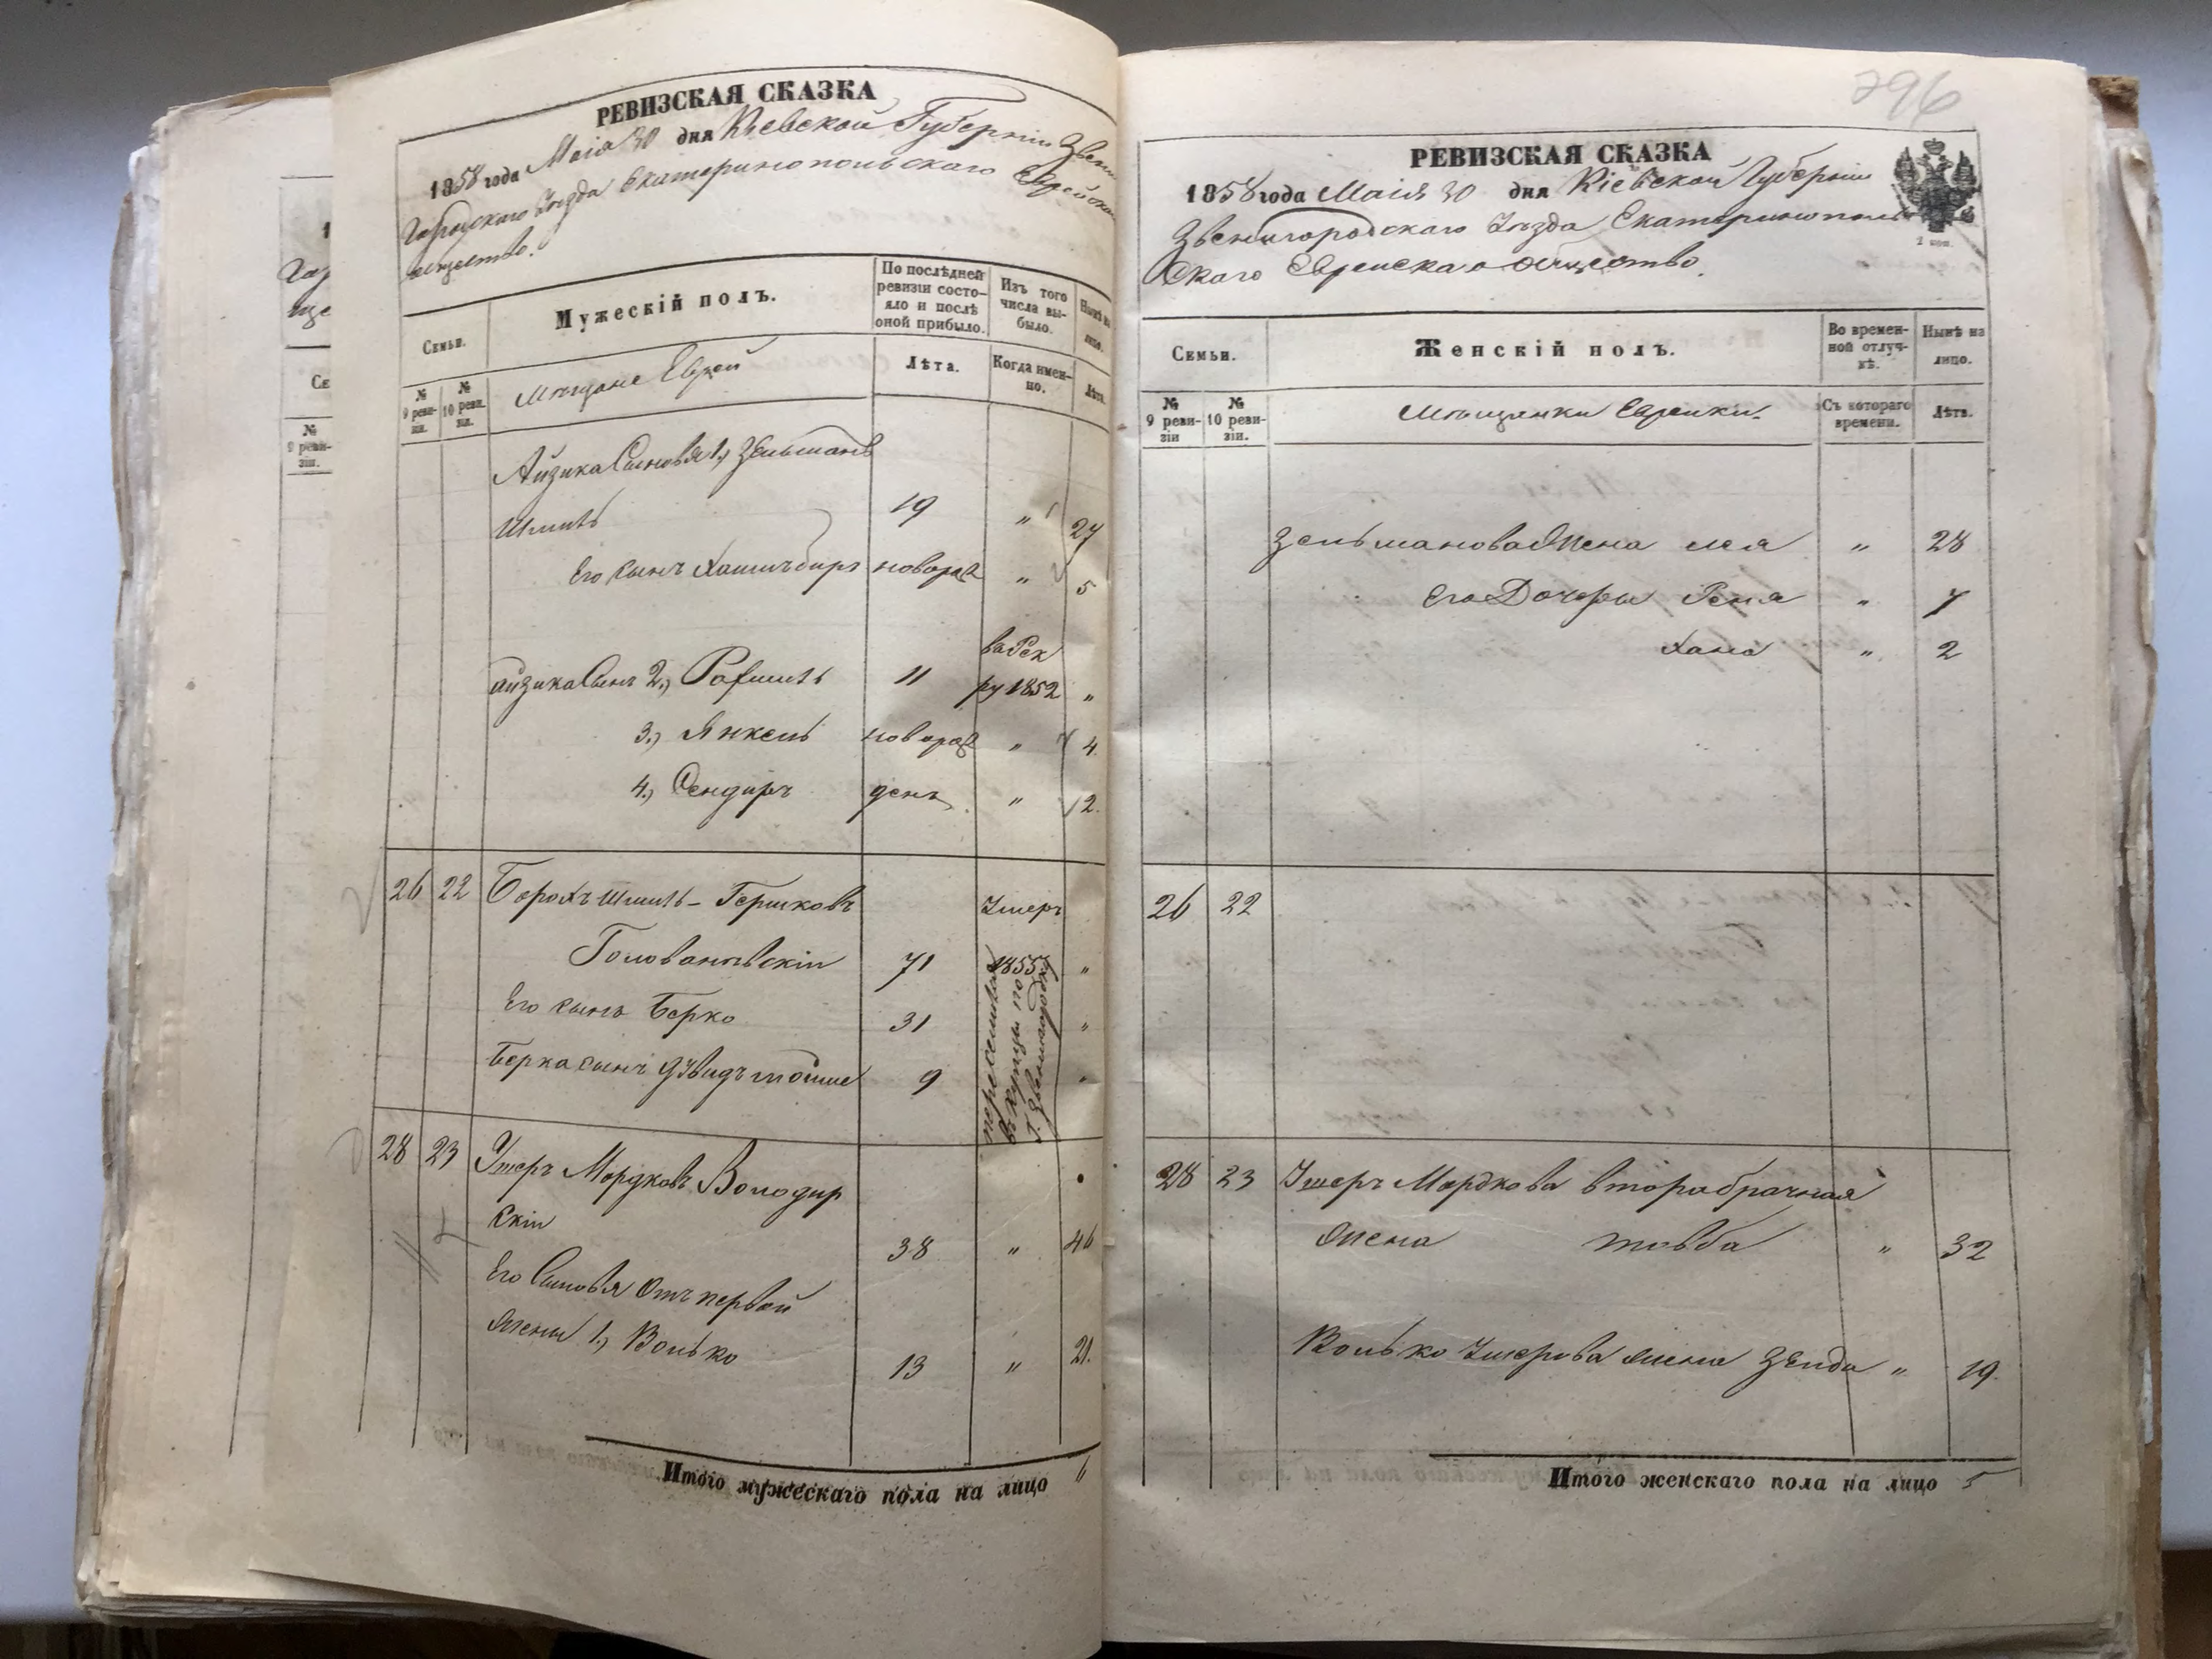 РЕВИЗСКАЯ СКАЗКА
1858 года Маія 30 дня Кіевской Губерніи Звени
городскаго Уѣзда Екатеринопольскаго Еврейска
общество.
Семьи.
Мужескій полъ.
По послѣдней ревизіи состояло и послѣ оной прибыло.
Изъ того числа выбыло.
Нынѣ на лицо.
№ 9 ревизіи.
№ 10 ревизіи.
Мѣщане Евреи
Лѣта.
Когда именно.
Лѣта.
Айзика Сыновья 1., Зельманъ
Шмиль 19 " 27
Его сынъ Хаимъ бирг новорож " 5
ва Рек
Айзика Сынъ 2., Рафиилъ 11 ру 1852 "
3., Янкель новорож " 4
4., Сендиръ денъ " 2.
26 22 Борохъ Шмиль-Гершковъ Умеръ
Головановскій 71 1855 "
Его сынъ Берко 31 "
Берка сынъ Дэвидъ мойше 9 "
переселились
въ Купцы по
г. Звенигородкѣ
28 23 Ушеръ Мордковъ Володар
скій 38 " 46
Его Сыновья отъ первой
жены 1., Волько 13 " 21.
Итого мужескаго пола на лицо 6
296
РЕВИЗСКАЯ СКАЗКА
1858 года Маія 30 дня Кіевской Губерніи
Звенигородскаго Уѣзда Екатеринополь
скаго Еврейскаго общество.
2 коп.
Семьи.
Женскій полъ.
Во временной отлучкѣ.
Нынѣ на лицо.
№ 9 ревизіи
№ 10 ревизіи.
Мѣщанки Еврейки.
Съ котораго времени.
Лѣта.
Зельманова Жена лея " 28
Его Дочеры Рейза " 7
Хана " 2
26 22
28 23 Ушеръ Мордкова второбрачная
жена товба " 32
Волько Ушерова жена Зенда " 19.
Итого женскаго пола на лицо 5